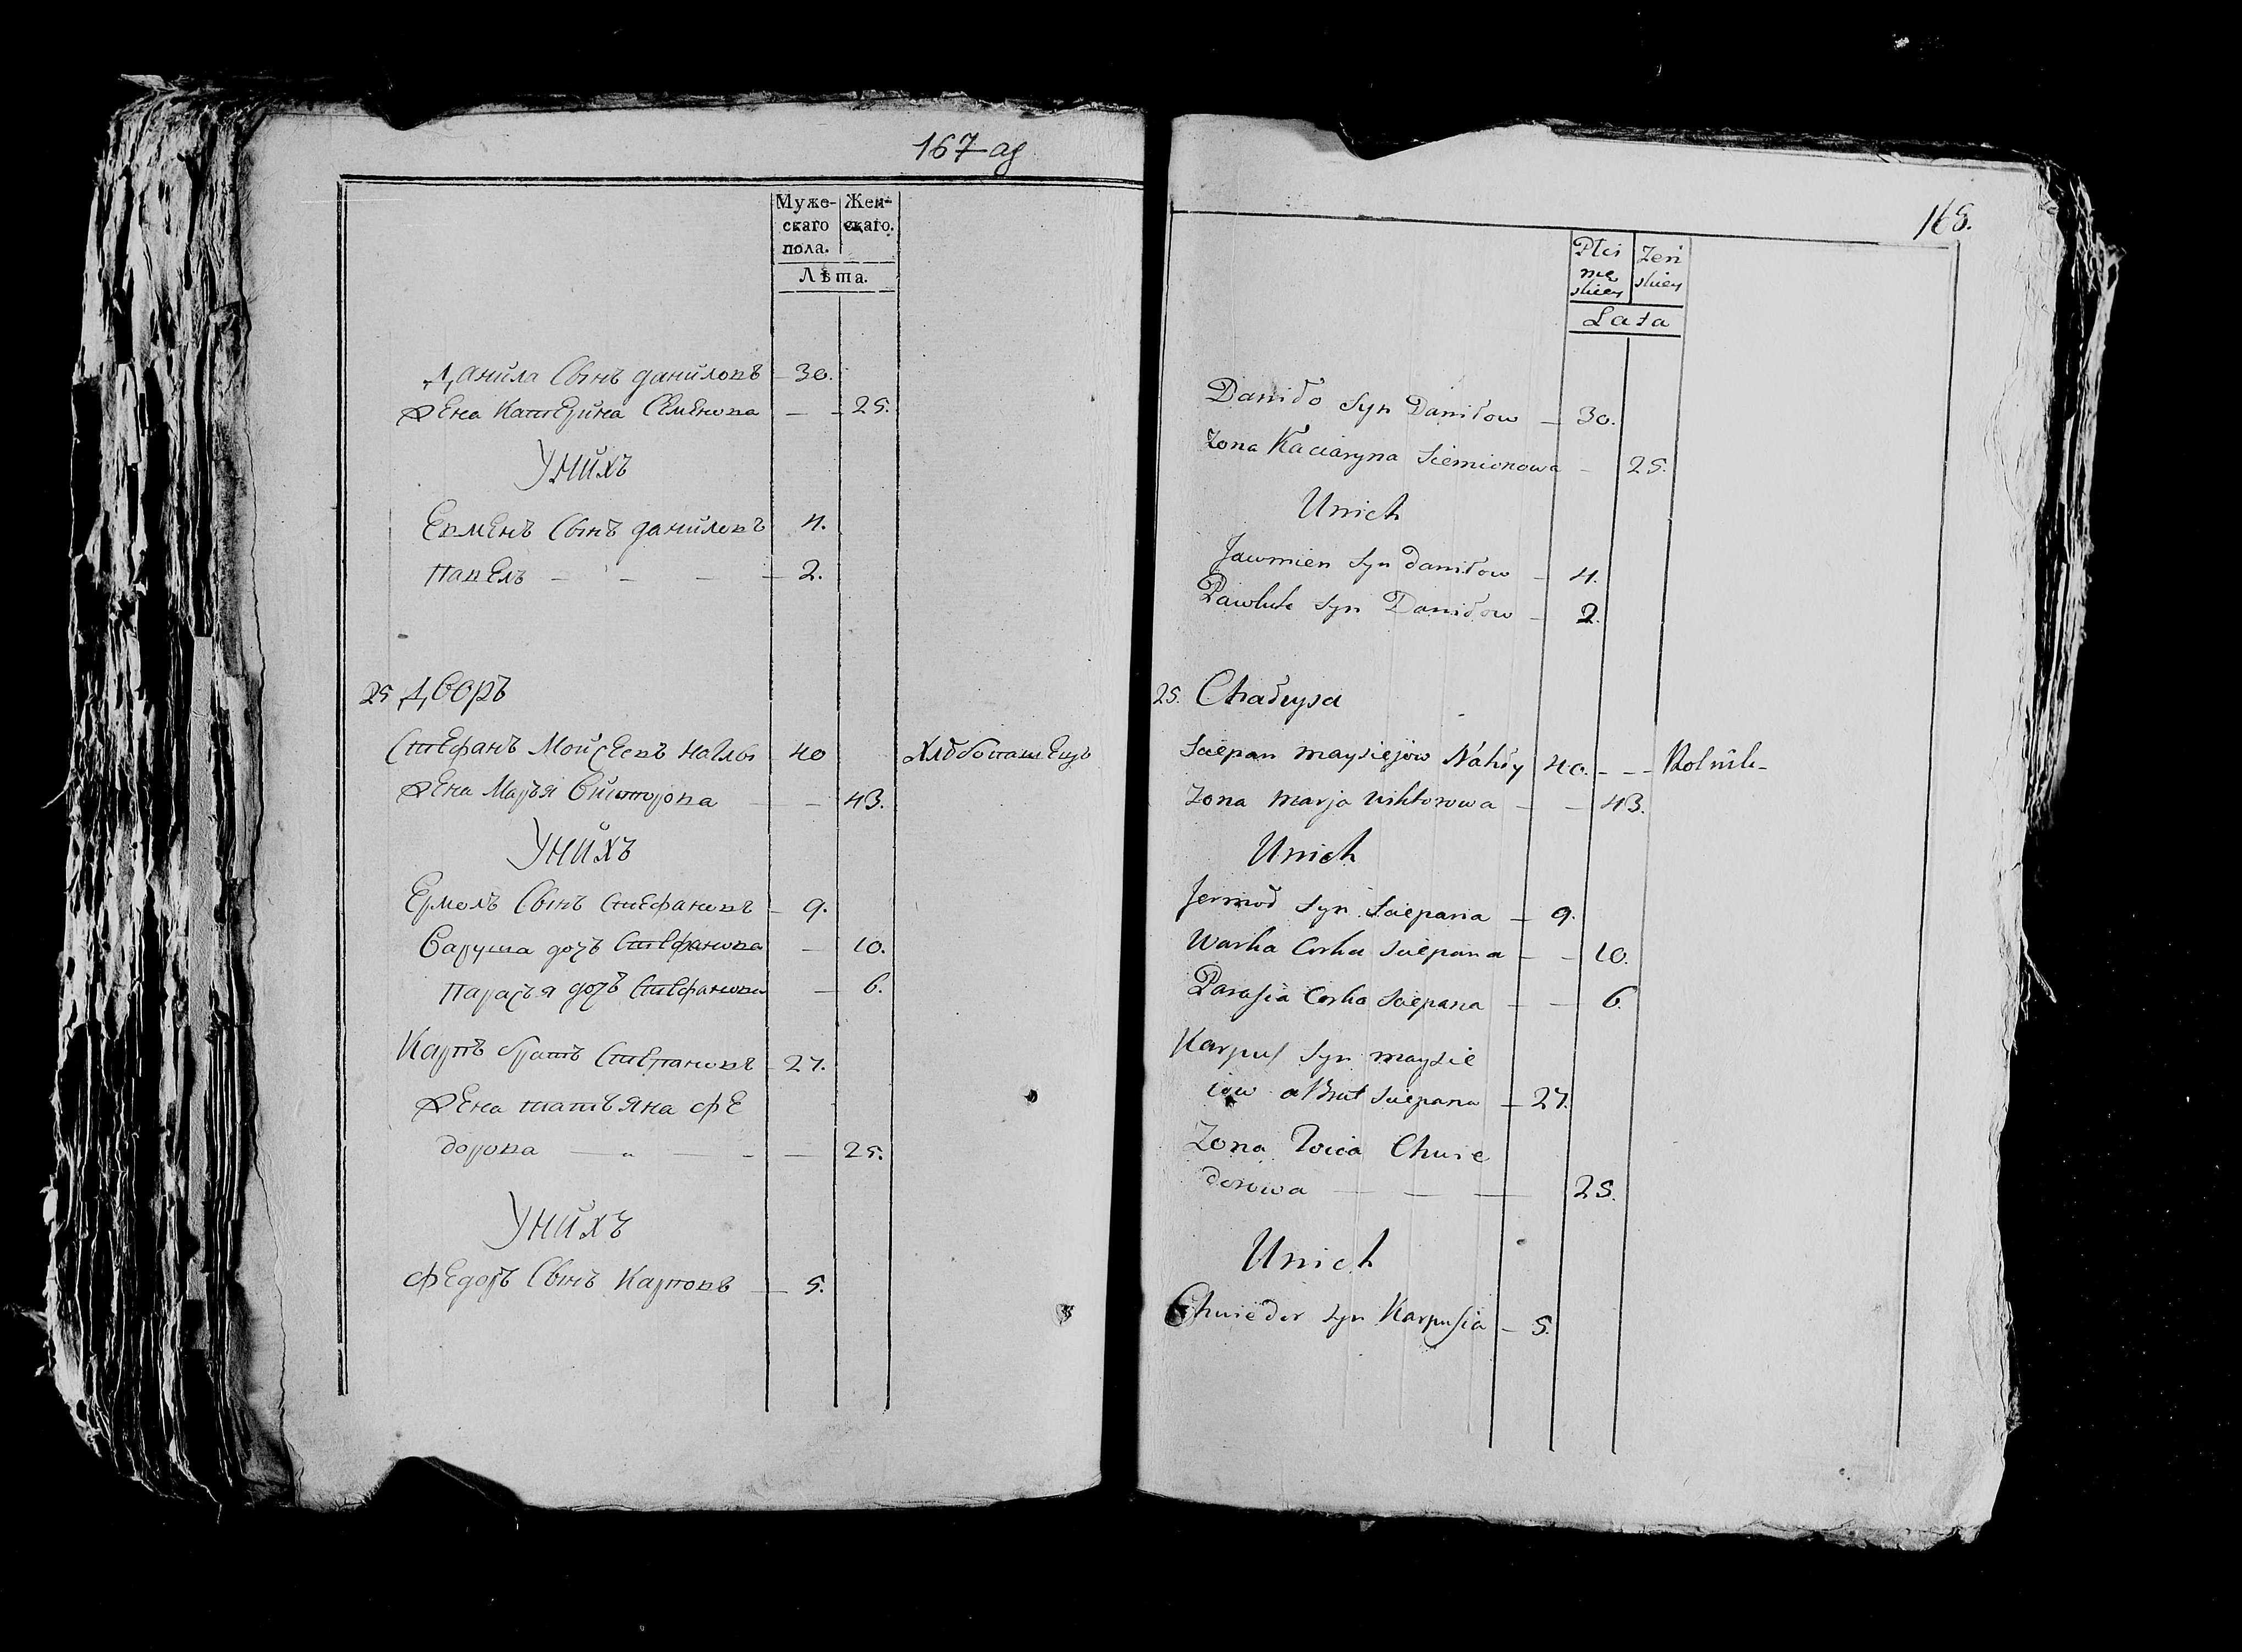 167 ад
Муже- Жен-
скаго скаго.
пола.
Лѣта.
Данила Сынъ даниловъ 30.
Жена Катерина Семенова 25.
У нихъ
Евменъ Сынъ даниловъ 4.
Павелъ 2.
25 Дворъ
Стефанъ Мойсеевъ 40 Хлѣбопашецъ
Жена Марья Викторова 43.
У нихъ
Ермолъ Сынъ Стефановъ 9.
Варуша дочь Стефанова 10.
Парасья дочь Стефанова 6.
Карпъ братъ Стефановъ 27.
Жена татьяна фе
дорова 25.
У нихъ
федоръ Сынъ Карповъ 5.
168.
Płci Zeń
mę skiey
skiey
Lata
Daniło Syn Daniłow 30.
Zona Kaciaryna Siemionowa 25.
Unich
Jawmien Syn Daniłow 4.
Pawluk Syn Daniłow 2.
25. Chałupa
Sciepan Maysiejow 40. Rolnik
Zona Marja Wiktorowa 43.
Unich
Jermoł Syn Sciepana 9.
Warka Corka Sciepana 10.
Parasia Corka Sciepana 6.
Karpus Syn Maysie
iow a Brat Sciepana 27.
Zona Chwie
dorowa 25.
Unich
Chwiedor Syn Karpusia 5.